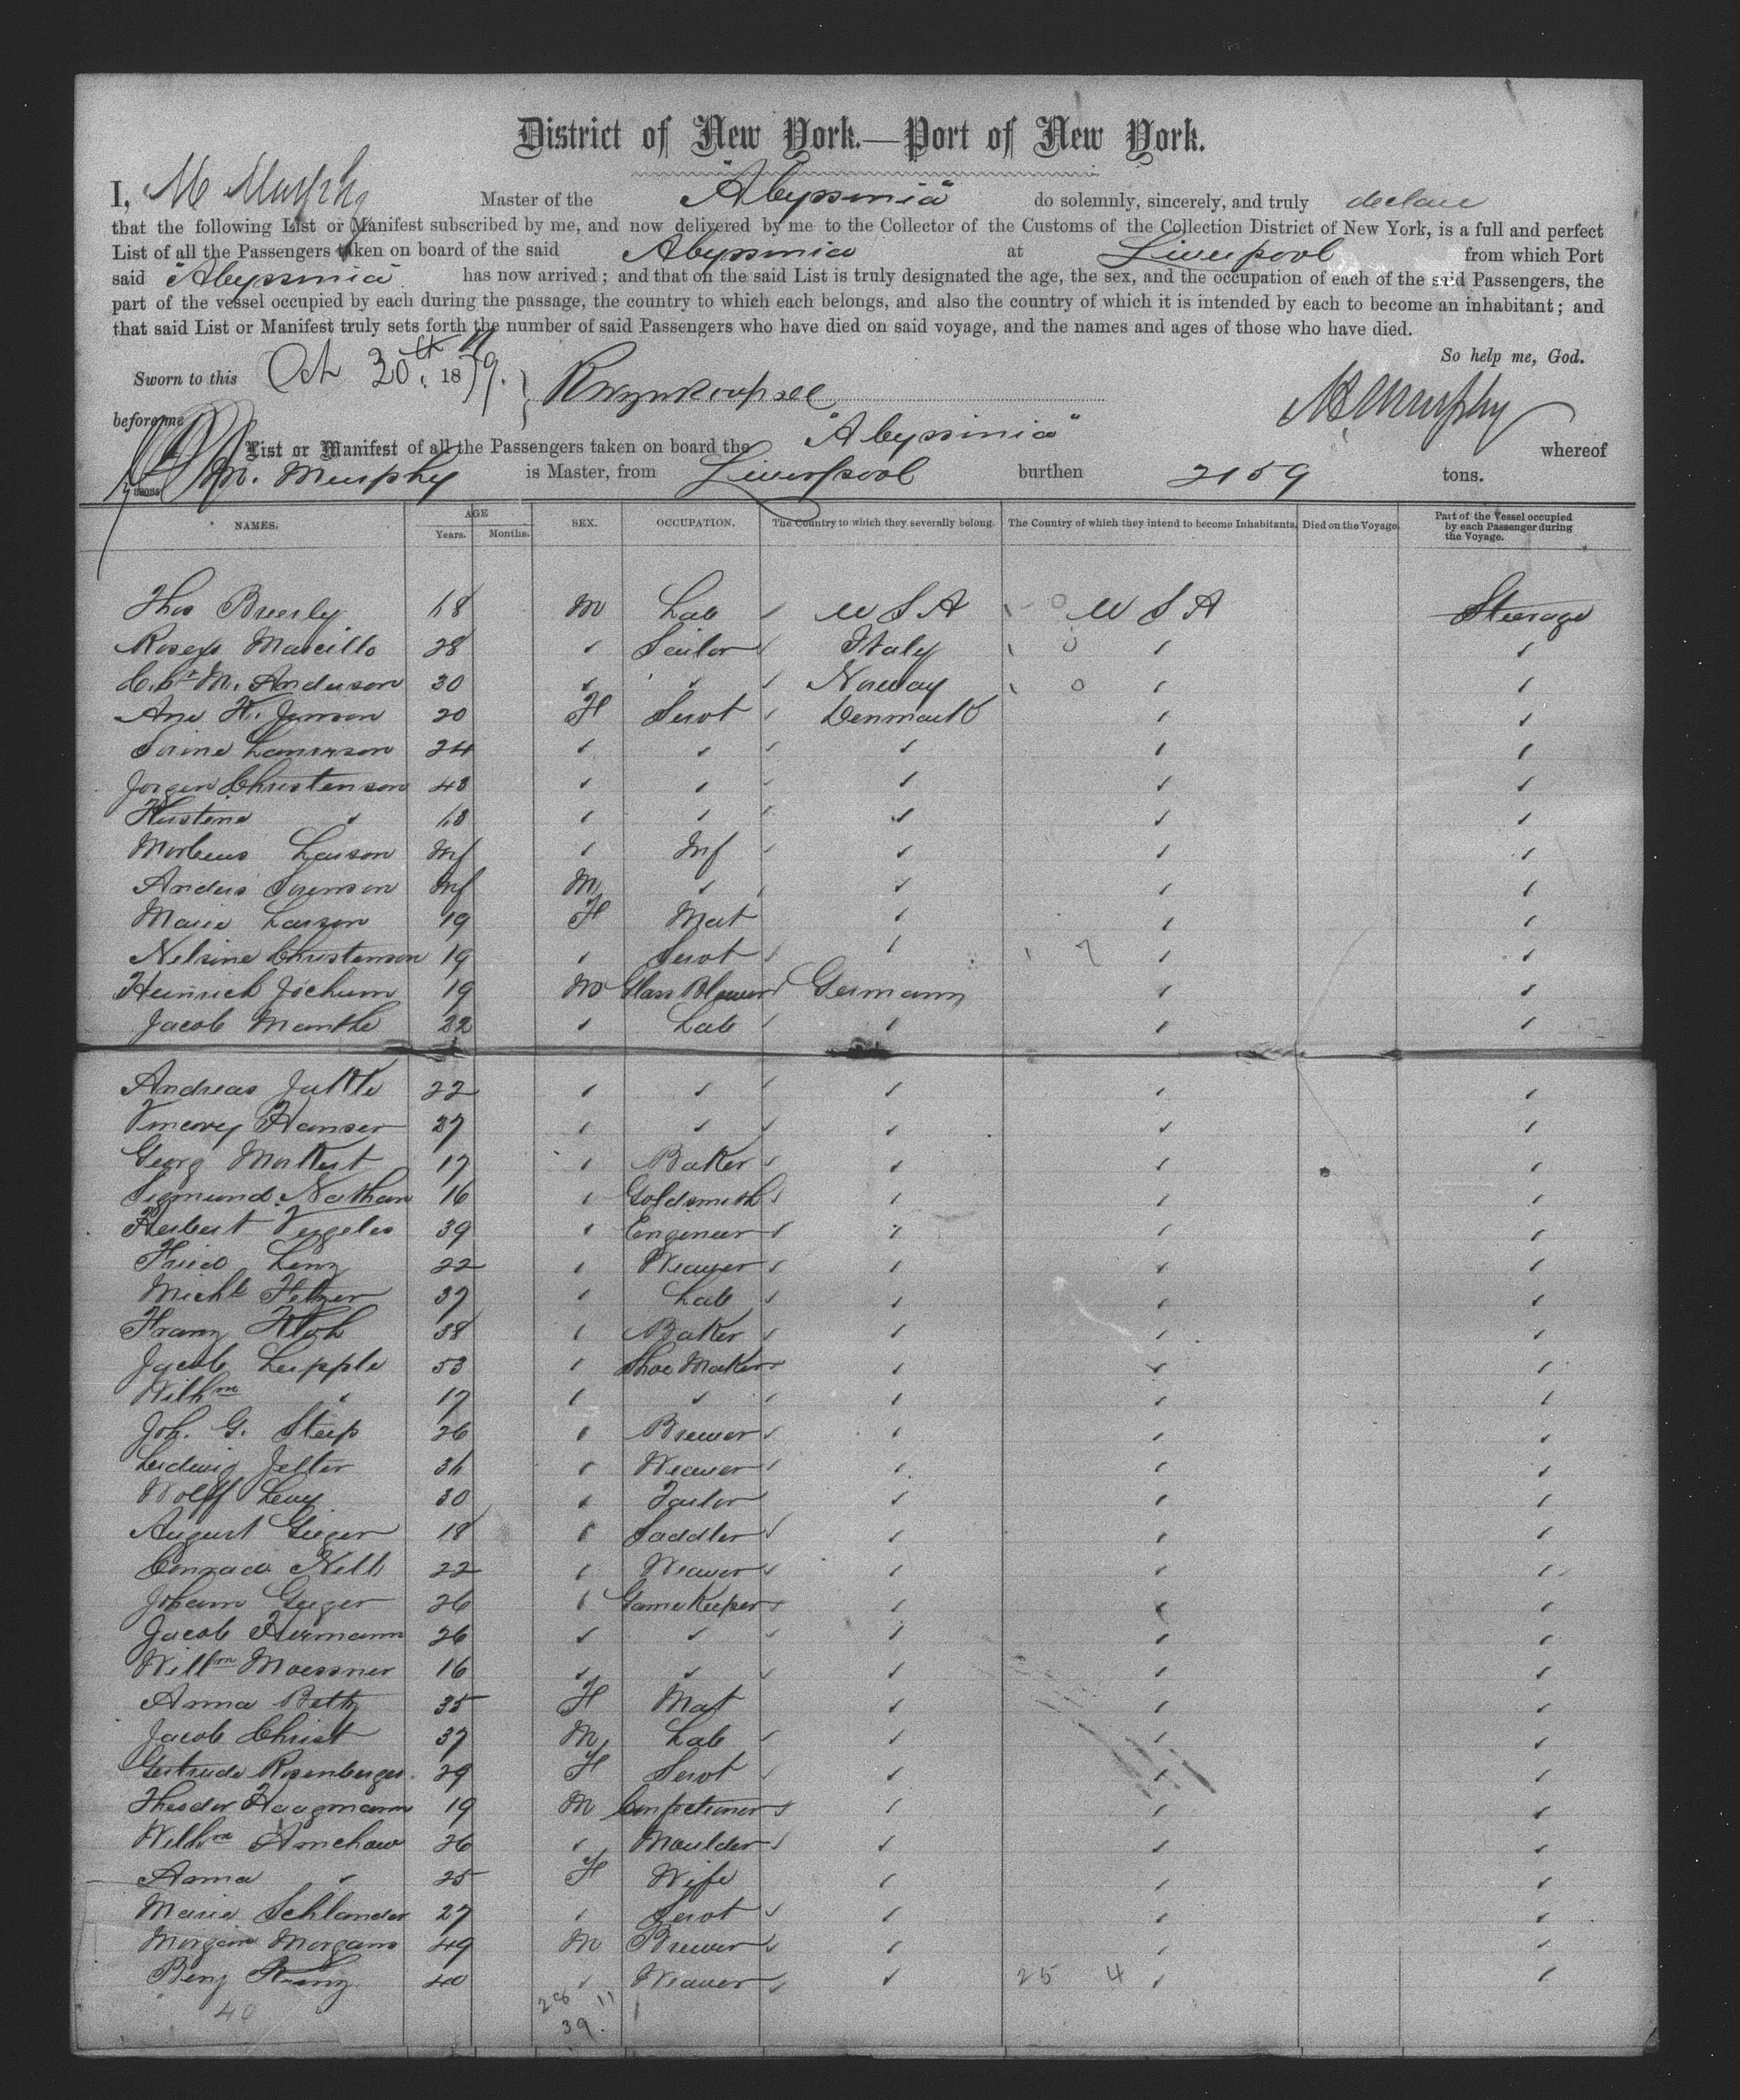 District of New York.—Port of New York.
I, M Murphy Master of the "Abyssinia" do solemnly, sincerely, and truly declare
that the following List or Manifest subscribed by me, and now delivered by me to the Collector of the Customs of the Collection District of New York, is a full and perfect
List of all the Passengers taken on board of the said Abyssinia at Liverpool from which Port
said "Abyssinia" has now arrived; and that on the said List is truly designated the age, the sex, and the occupation of each of the said Passengers, the
part of the vessel occupied by each during the passage, the country to which each belongs, and also the country of which it is intended by each to become an inhabitant; and
that said List or Manifest truly sets forth the number of said Passengers who have died on said voyage, and the names and ages of those who have died.
So help me, God.
Sworn to this Oct 30th 1879.
before me
M Murphy
List or Manifest of all the Passengers taken on board the "Abyssinia" whereof
M. Murphy is Master, from Liverpool burthen 2159 tons.
NAMES. AGE Years. Months. SEX. OCCUPATION. The Country to which they severally belong. The Country of which they intend to become Inhabitants. Died on the Voyage. Part of the Vessel occupied by each Passenger during the Voyage.
Thos Brierly 18 M Lab U S A U S A Steerage
Marcillo 28 Sailor Italy
M. Anderson 30 Norway
Ane K. Jenson 20 F Servt Denmark
Sorine 24
Jorgen Christenson 43
Kirstine 13
Larson Inf Inf
Anders Sorenson Inf M
Marie Larson 19 F Mat
Nelsine Christenson 19 Servt
Heinrich Jochum 19 M Glass Blower Germany
Jacob Manthe 22 Lab
Andreas 22
Hanser 27
Georg Markert 17 Baker
Sigmund Nathan 16 Goldsmith
Herbert 39 Engineer
Fried Lenz 22 Weaver
Michl 37 Lab
Franz Kloh 38 Baker
Jacob Lepple 53 Shoe Maker
Wilhm 17
Joh. G. Steip 26 Brewer
Ludwig Jetter 31 Weaver
Wolff Levy 30 Tailor
August Geiger 18 Saddler
Conrad Nill 22 Weaver
Johann Geiger 26 Game Keeper
Jacob Hermann 26
Willm Moessner 16
Anna Betty 35 F Mat
Jacob Christ 37 M Lab
Gertrude Rosenberger 29 F Servt
Theodor Haagmann 19 M Confectioner
Wilhm Amchaw 26 Moulder
Anna 25 F Wife
Marie Schlander 27 Servt
Morgan Morgans 49 M Brewer
Benj 40 Weaver 25 4
40 28 11
39.